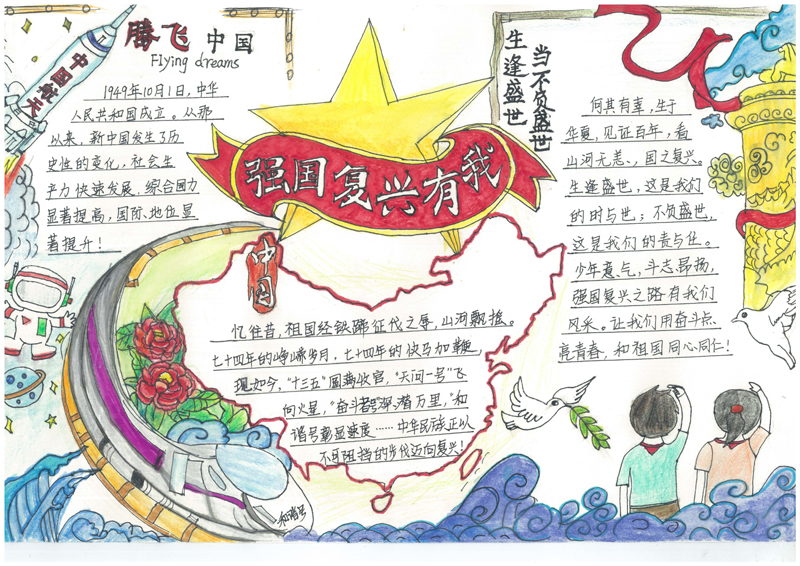 中国航天
腾飞中国
Flying dreams
1949年10月1日,中华
人民共和国成立。从那
以来,新中国发生了历
史性的变化,社会生
产力快速发展,综合国力
显著提高,国际地位显
著提升!
强国复兴有我
生逢盛世
当不负盛世
何其有幸,生于
华夏,见证百年,看
山河无恙、国之复兴。
生逢盛世,这是我们
的时与世;不负盛世,
这是我们的责与任。
少年意气,斗志昂扬,
强国复兴之路有我们
风采。让我们用奋斗点
亮青春,和祖国同心同仁!
中国
忆往昔,祖国经铁蹄征伐之辱,山河飘摇。
七十四年的峥嵘岁月,七十四年的快马加鞭
现如今,“十三五”圆满收官,“天问一号”飞
向火星,“奋斗者号”深潜万里,“和
谐号彰显速度……中华民族正以
不可阻挡的步伐迈向复兴!
和谐号